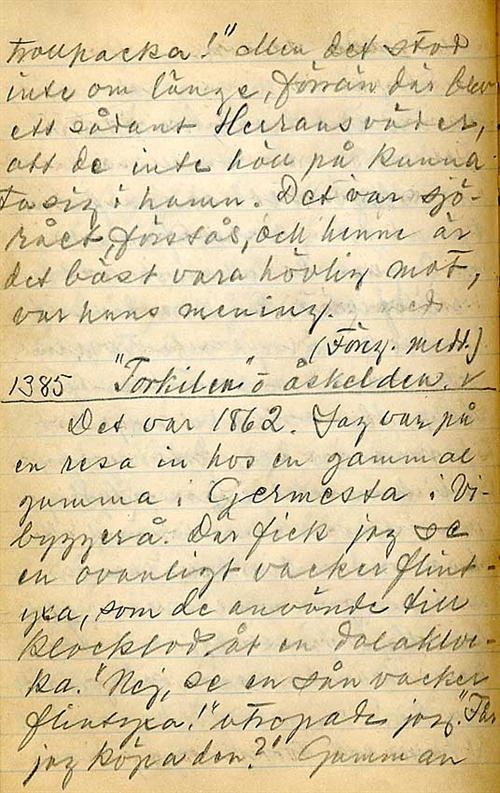 trollpacka!" Men det stod
inte om länge, förrän där blev
ett sådant Herrans väder,
att de inte höll på kunna
ta sig i hamn. Det var sjö-
rået, förstås, och henne är
det bäst vara hövlig mot,
var hans mening.
(Föreg. medd.)
1385 "Torkilen" o åskelden. v
Det var 1862. Jag var på
en resa in hos en gammal
gumma i Germesta i Vi-
byggerå. Där fick jag se
en ovanligt vacker flint-
yxa, som de använde till
klocklod åt en dalaklo-
ka. "Nej, se en sån vacker
flintyxa!" utropade jag. "Får
jag köpa den?" Gumman